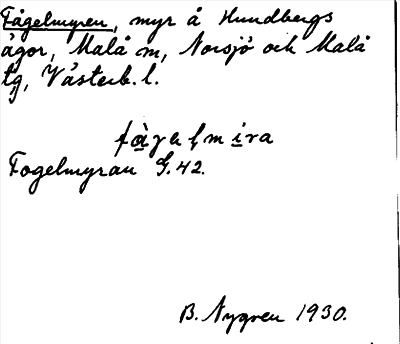 Fågelmyren, myr å Hundbergs
ägor, Malå sn, Norsjö och Malå
tg, Västerb. l.
fàgelmira
Fogelmyran G.42.
B. Nygren 1930.